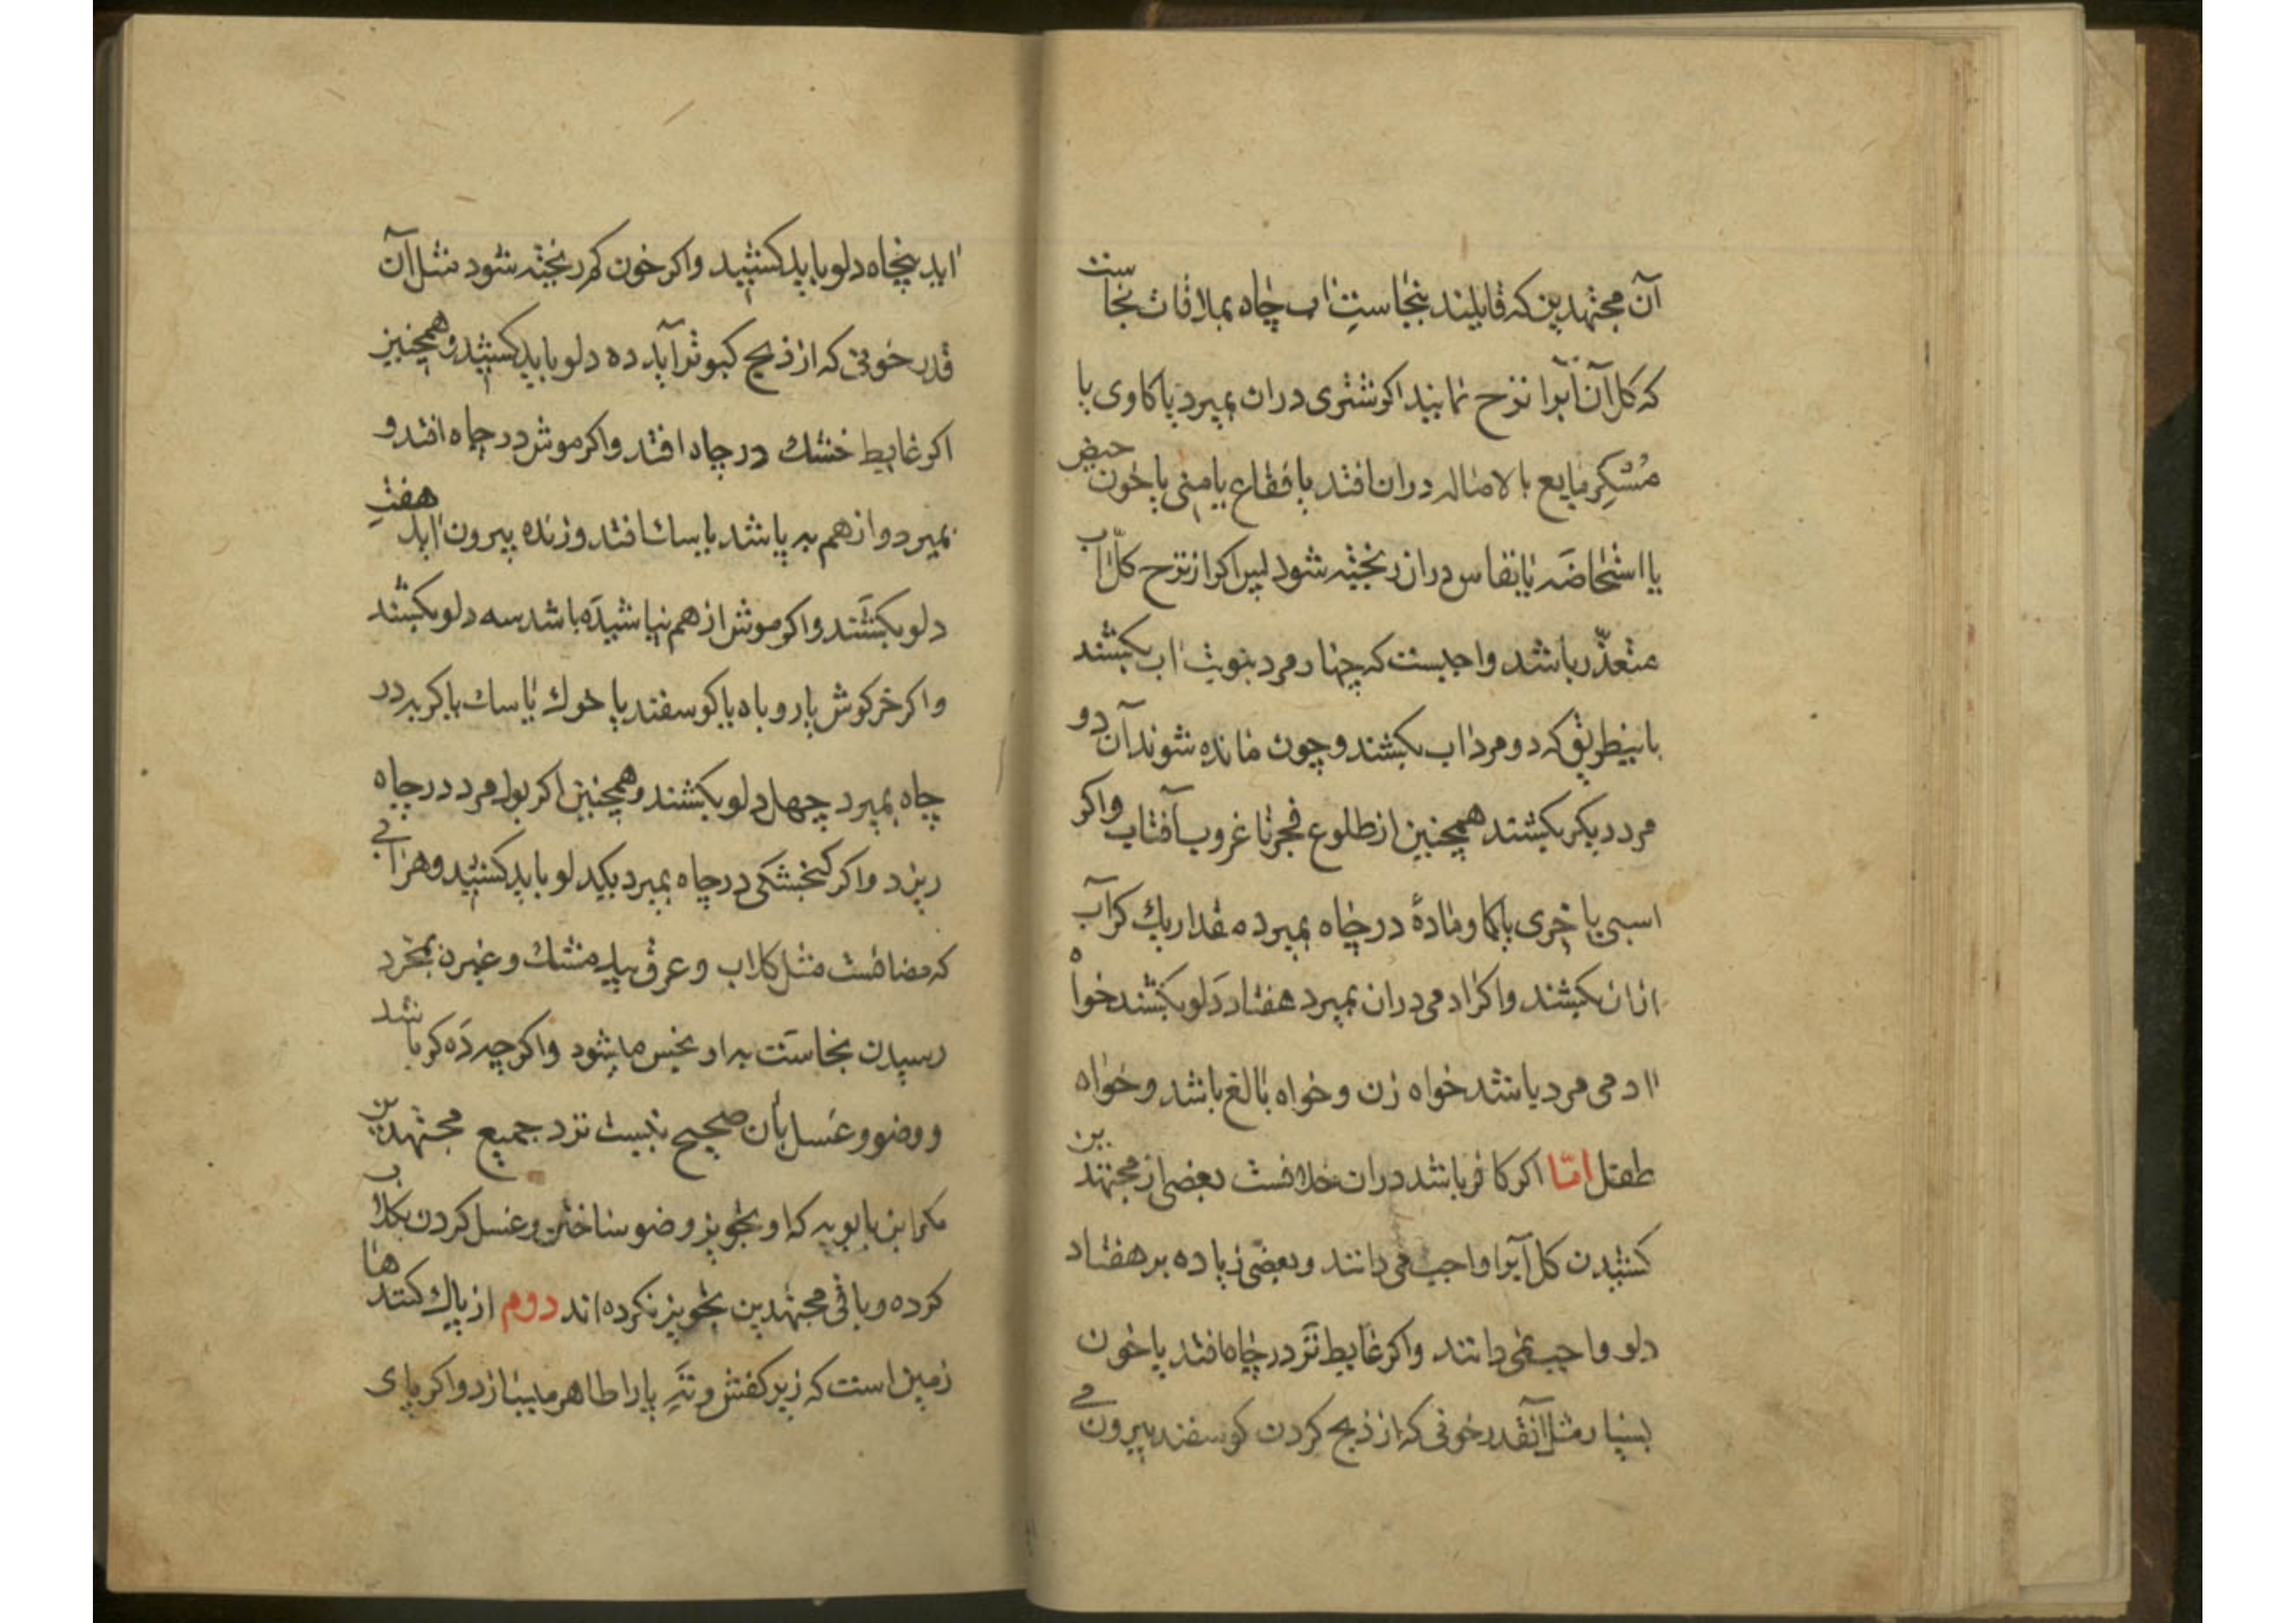 آن مجتهدین که قایلند بنجاستِ اب چاه بملاقات نجاست
که کل آن آبرا نزح نمایند اکر شتری دران بمیرد یا کاوی یا
مُسْکِر مایع بالاصاله دران افتد یا فقاع یا منی یا خون حیض
یا استحاضَه یا نفاس دران ریخته شود پس اکر از نزح کلّ اب
متعذّر باشد واجبست که چهار مرد بنوبت اب بکشند
باینطریق که دو مرد اب بکشند و چون مانده شوند آن دو
مرد دیکر بکشند همچنین از طلوع فجر تا غروب آفتاب واکر
اسبی یا خری یا کاو مادهٔ در چاه بمیرد مقدار یك کر آب
ازان بکشند واکر ادمی دران بمیرد هفتاد دَلو بکشند خواه
ادمی مرد باشد خواه زن و خواه بالغ باشد و خواه
طفل امّا اکر کافر باشد دران خلافست بعضی از مجتهدین
کشیدن کل آبرا واجب می دانند و بعضی زیاده بر هفتاد
دلو واجب نمی دانند واکر غایط تَر در چاه افتد یا خون
بسیار مثل آنقدر خونی که از ذبح کردن کوسفند بیرون می
اید پنجاه دلو باید کشید واکر خون کم ریخته شود مثل آن
قدر خونی که از ذبح کبوتر آید ده دلو باید کشید و همچنین
اکر غایط خشك در چاه افتد واکر موش در چاه افتد و
بمیرد و از هم بپاشد یا سك افتد و زنده بیرون اید هفتِ
دلو بکشند واکر موش از هم نپاشیدَه باشد سه دلو بکشند
واکر خرکوش یا روباه یا کوسفند یا خوك یا سك یا کربه در
چاه بمیرد چهل دلو بکشند و همچنین اکر بول مرد در چاه
ریزد واکر کنجشکی در چاه بمیرد یکدلو باید کشید و هر آبی
که مضافست مثل کلاب و عرق بید مشك و غیره بمجّرد
رسیدن نجاسَت به او نجس میشود واکرچه دَه کر باشد
و وضو و غسل بآن صحیح نیست نزد جمیع مجتهدین
مکر ابن بابویه که او تجویز وضو ساختن و غسل کردن بکلاب
کرده و باقی مجتهدین تجویز نکرده اند دوم از پاك کنندها
زمین است که زیر کفش و تَهِ پا را طاهر میسازد واکر پای